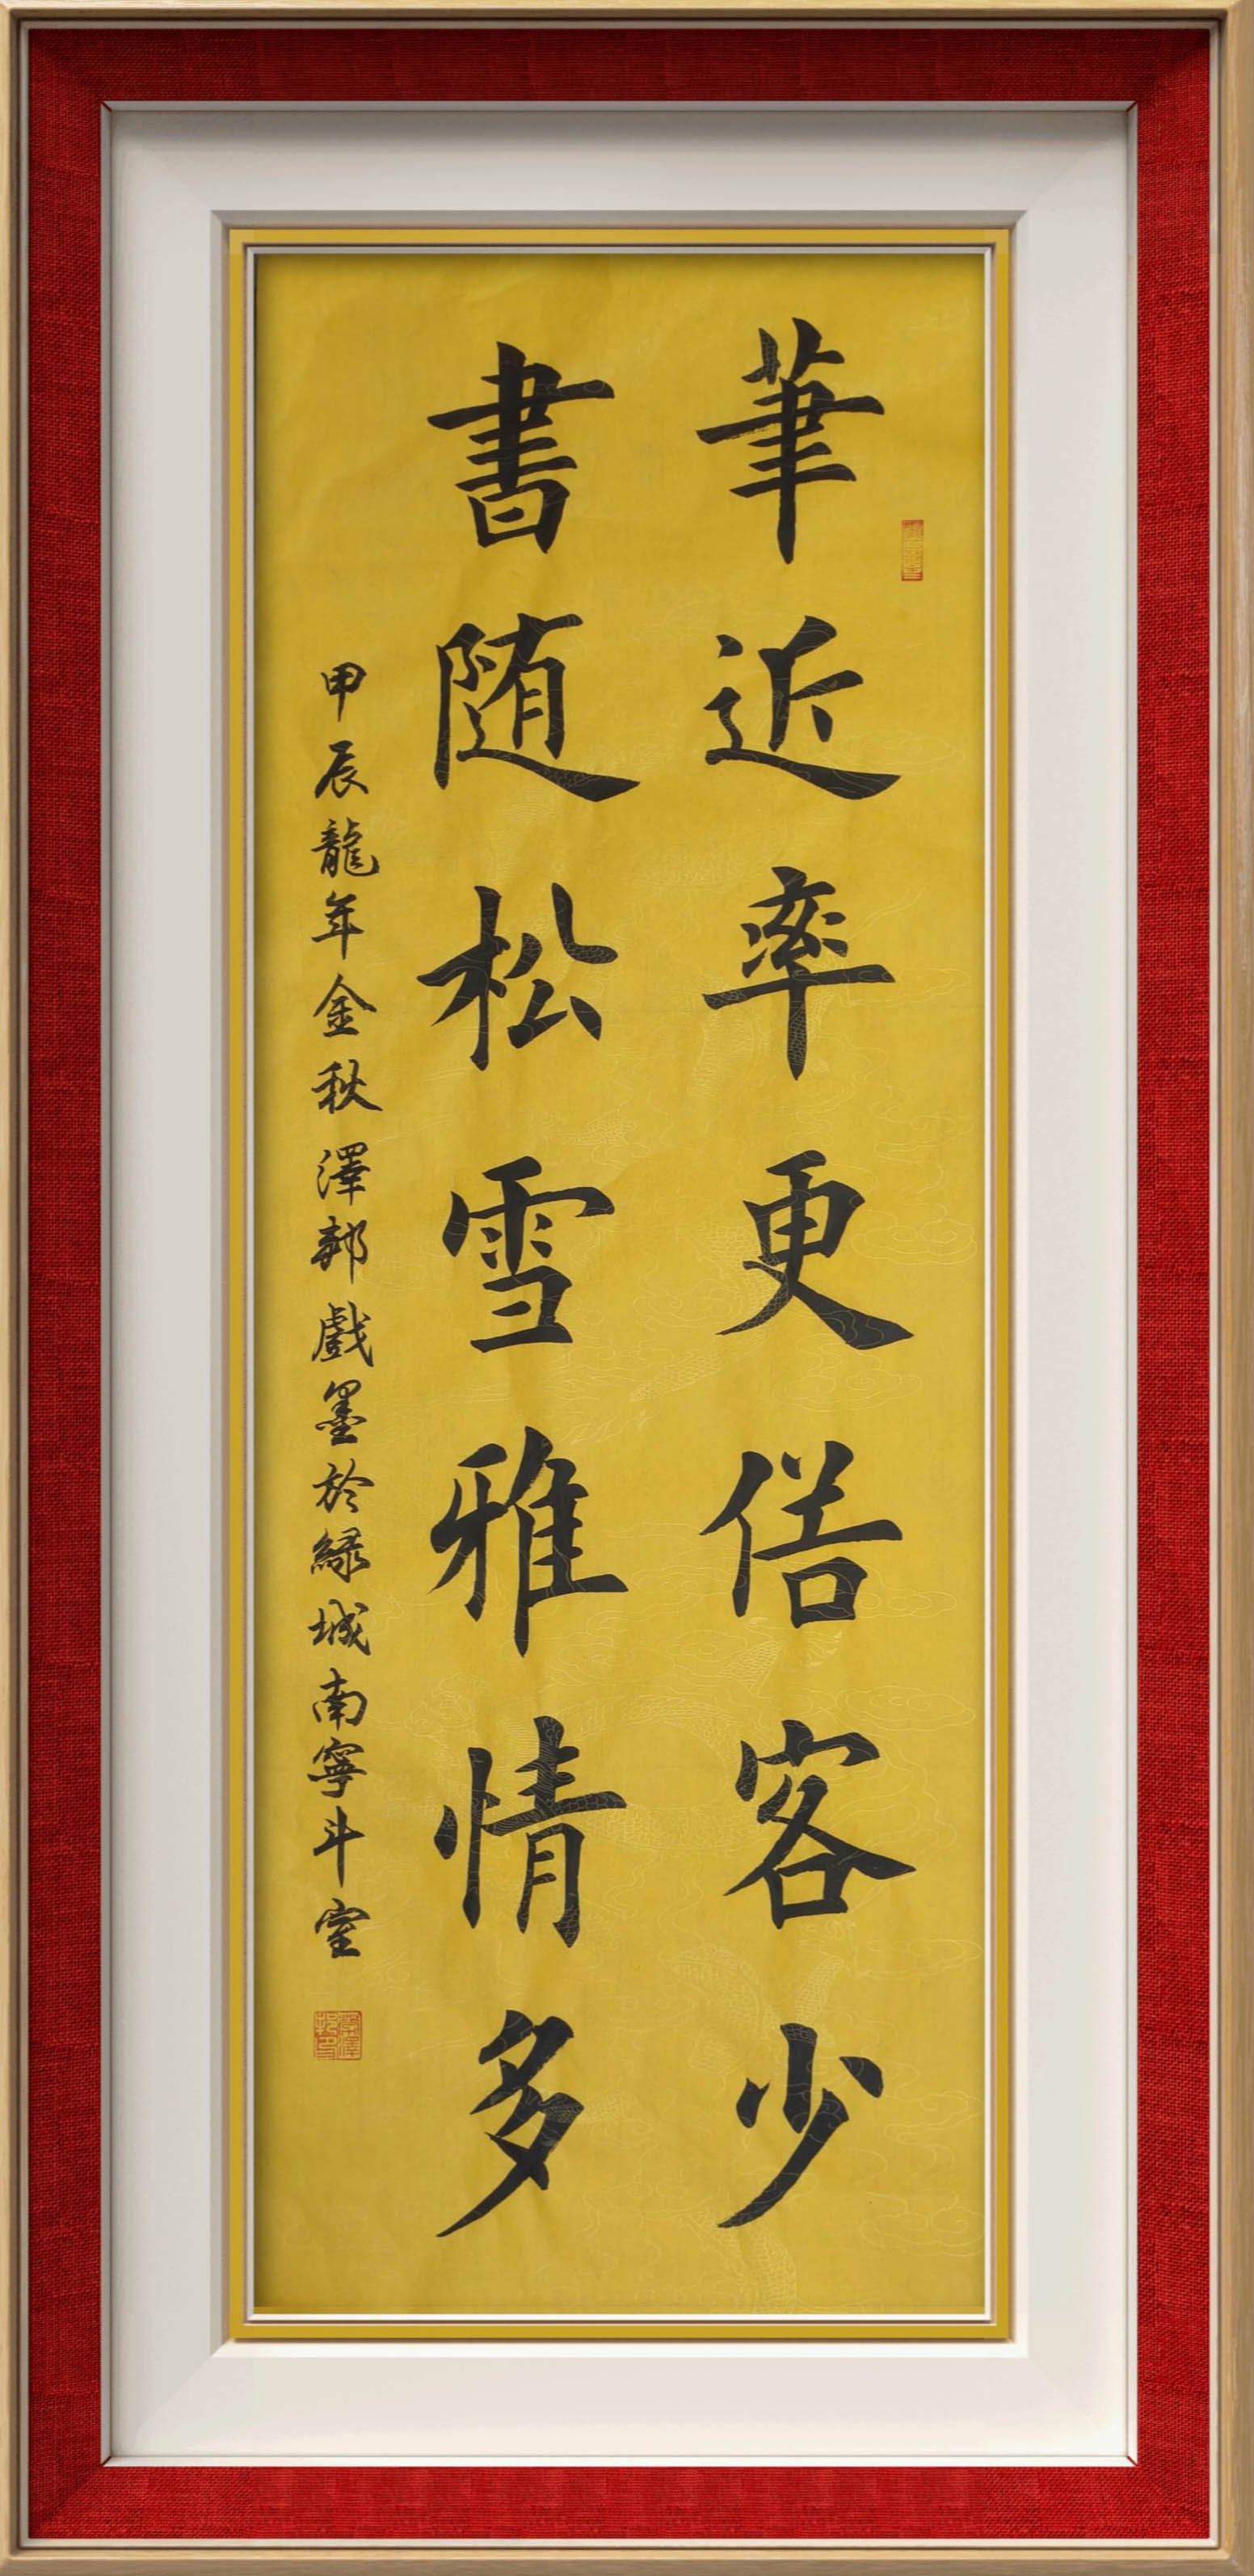 筆近率更俗客少
書随松雪雅情多
甲辰龍年金秋澤邦戲墨於緑城南寧斗室